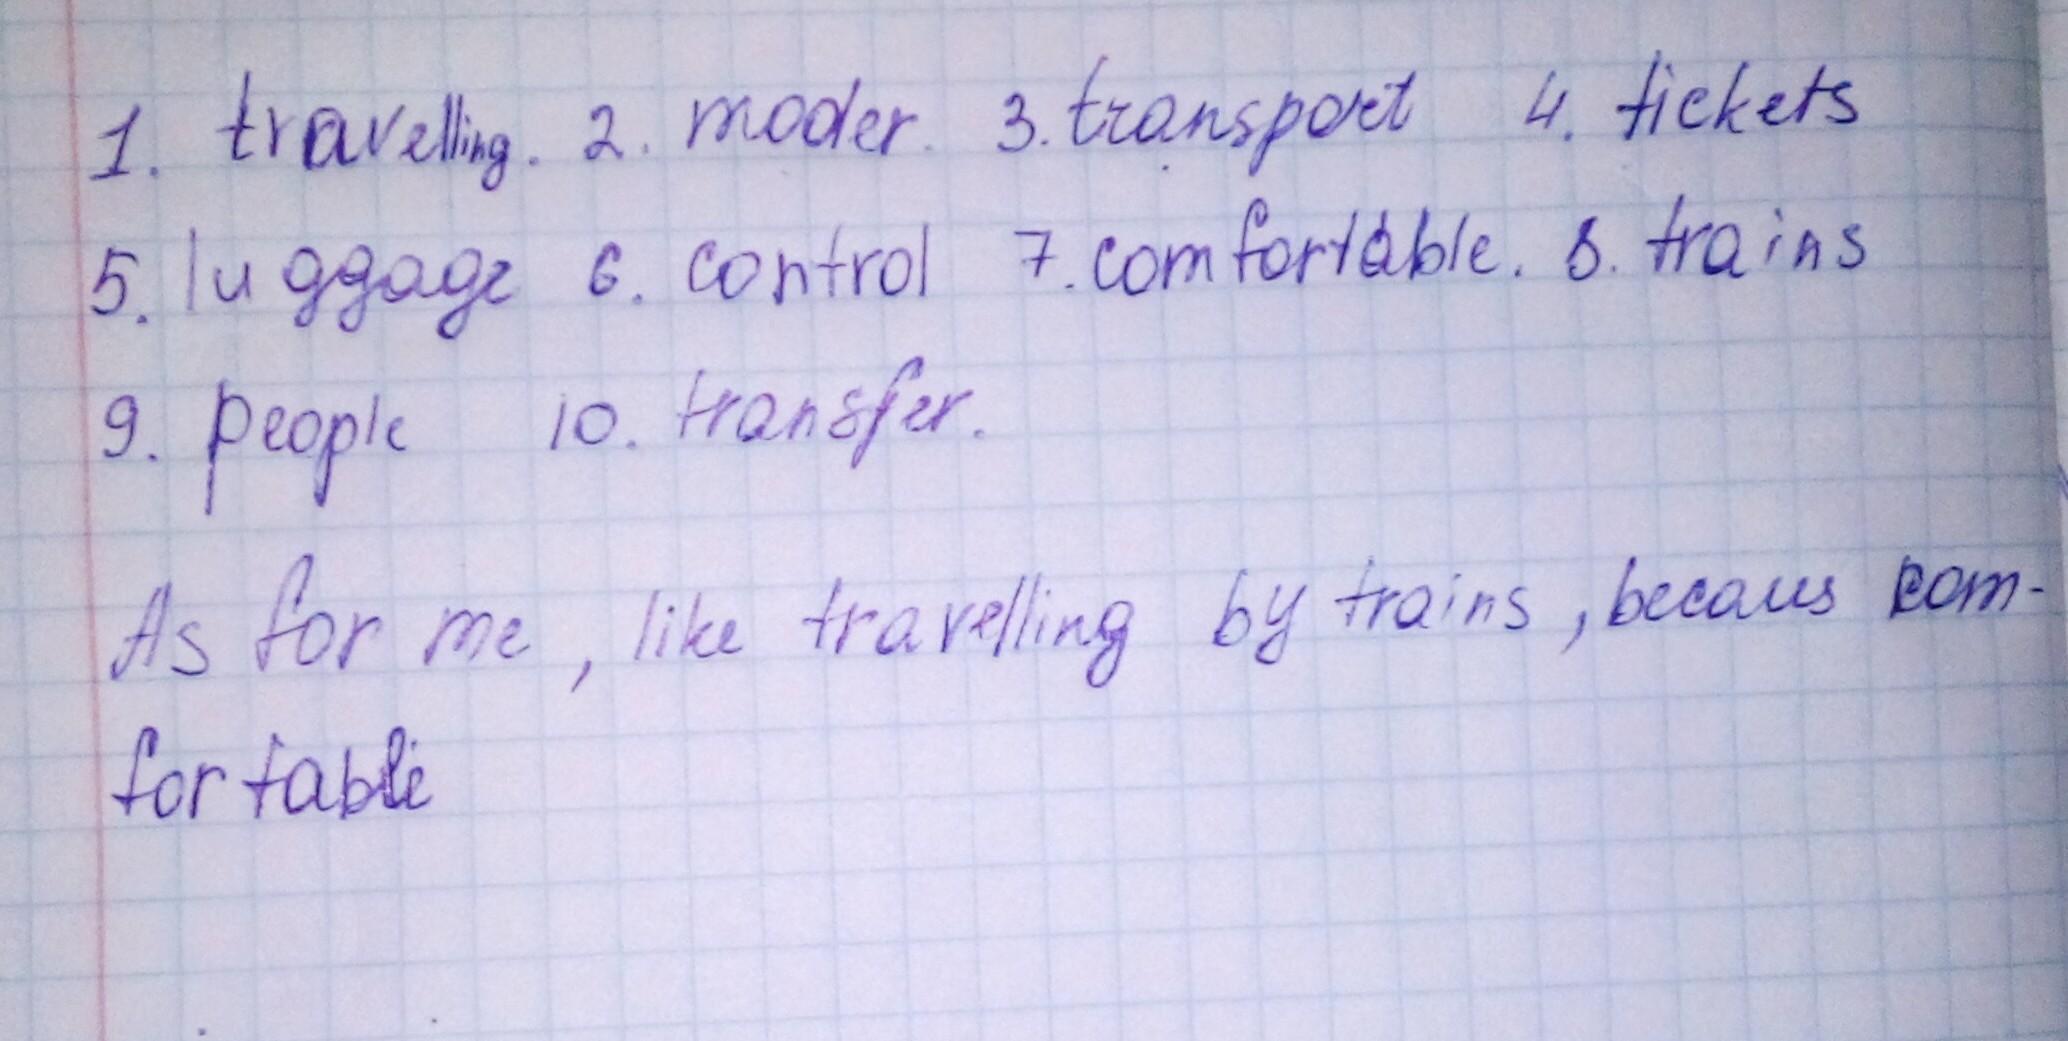 1. travelling. 2. moder. 3. transport 4. tickets
5. luggage 6. control 7. comfortable. 8. trains
9. people 10. transfer.
As for me, like travelling by trains, becaus com-
fortable